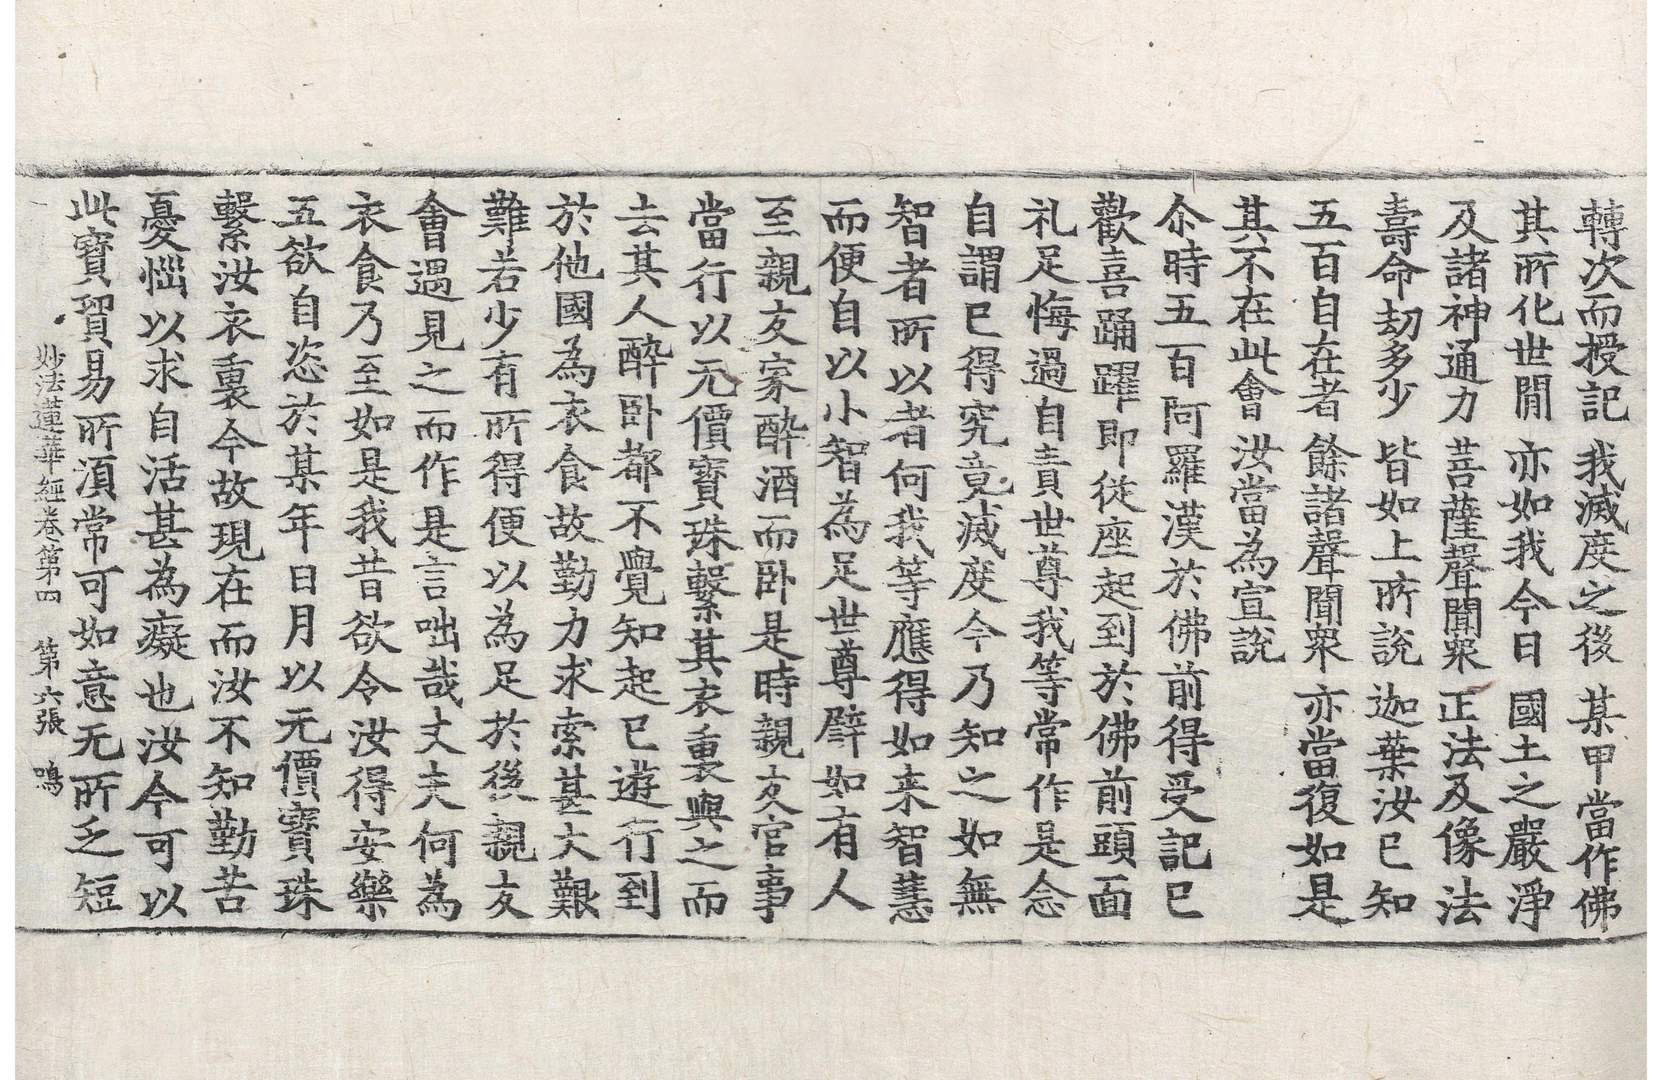 轉次而授記 我滅度之後 某甲當作佛
其所化世間 亦如我今日 國土之嚴淨
及諸神通力 菩薩聲聞眾 正法及像法
壽命劫多少 皆如上所說 迦葉汝已知
五百自在者 餘諸聲聞眾 亦當復如是
其不在此會 汝當為宣說
尒時五百阿羅漢於佛前得受記已
歡喜踊躍即從座起到於佛前頭面
礼足悔過自責世尊我等常作是念
自謂已得究竟滅度今乃知之如無
智者所以者何我等應得如来智慧
而便自以小智為足世尊譬如有人
至親友家醉酒而卧是時親友官事
當行以无價寶珠繫其衣裏與之而
去其人醉卧都不覺知起已遊行到
於他國為衣食故勤力求索甚大艱
難若少有所得便以為足於後親友
會遇見之而作是言咄哉丈夫何為
衣食乃至如是我昔欲令汝得安樂
五欲自恣於某年日月以无價寶珠
繫汝衣裏今故現在而汝不知勤苦
憂惱以求自活甚為癡也汝今可以
此寶貿易所湏常可如意无所乏短
妙法蓮華經卷第四 第六張 鳴